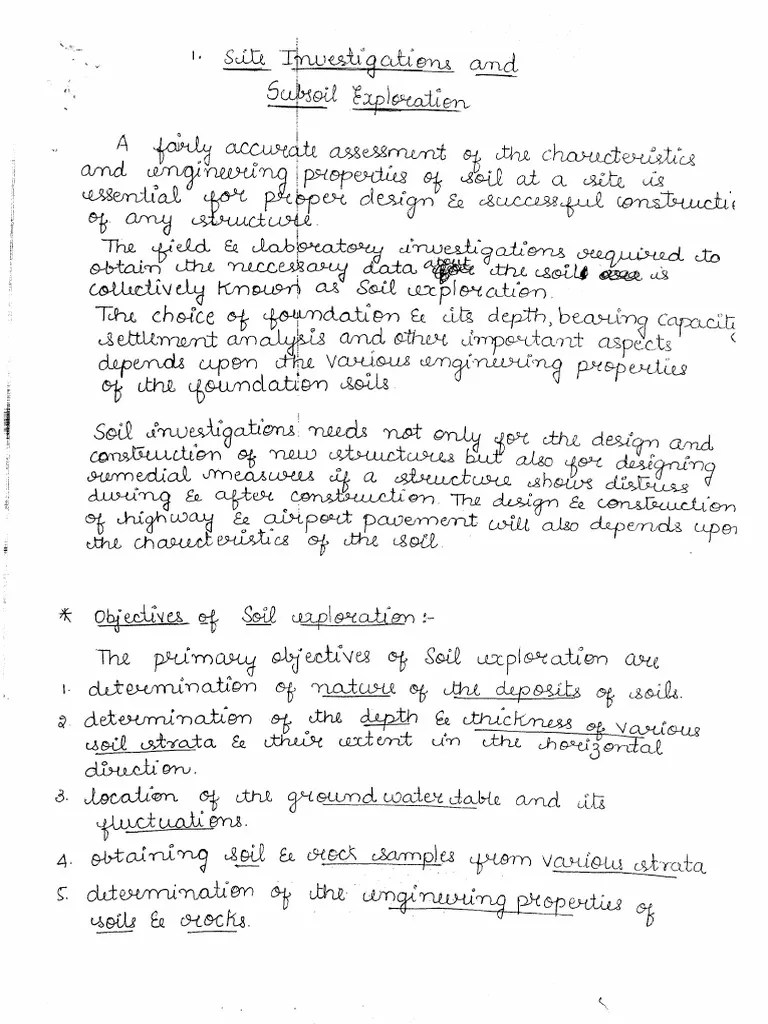 1. Site Investigations and
Subsoil Exploration
A fairly accurate assessment of the charecteristics
and engineering properties of soil at a site is
essential for proper design & successful constructi
of any structure.
The field & laboratory investigations required to
obtain the neccessary data about the soil is
collectively known as Soil exploration.
The choice of foundation & its depth, bearing capacit
settlement analysis and other important aspects
depends upon the various engineering properties
of the foundation soils.
Soil investigations needs not only for the design and
construction of new structures but also for designing
remedial measures if a structure shows distress
during & after construction. The design & construction
of highway & airport pavement will also depends upon
the charecteristics of the soil.
* Objectives of Soil exploration:-
The primary objectives of Soil exploration are
1. determination of nature of the deposits of soils.
2. determination of the depth & thickness of various
soil strata & their extent in the horizontal
direction.
3. location of the ground water table and its
fluctuations.
4. obtaining soil & rock samples from various strata
5. determination of the engineering properties of
soils & rocks.